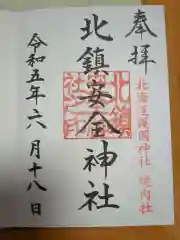 奉拝
北海道護國神社 境内社
北鎮安全神社
令和五年六月十八日